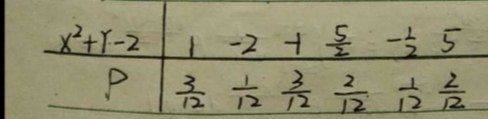 x²+Y-2 | 1 -2 -1 5/2 -1/2 5
P | 3/12 1/12 3/12 2/12 1/12 2/12